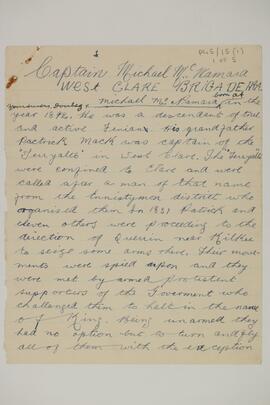 1
MS/15(1)
1 of 5
Captain Michael McNamara
WEST CLARE BRIGADE IRA.
born at
Michael McNamara in the
year 1892. He was a descendant of true
and active Fenians. His grandfather
Patrick Mack was captain of the
"Terryalts" in West Clare. The "Terryalts"
were confined to Clare and were
called after a man of that name
from the Ennistymon district who
organised them in 1831 Patrick and
eleven others were proceeding to the
direction of Querrin near Kilkee
to seize some arms there. Their move-
ments were spied upon and they
were met by armed protestent
supporters of the Goverment who
challenged them to halt in the name
of King. Being unarmed they
had no option but to turn and fly
all of them with the exception